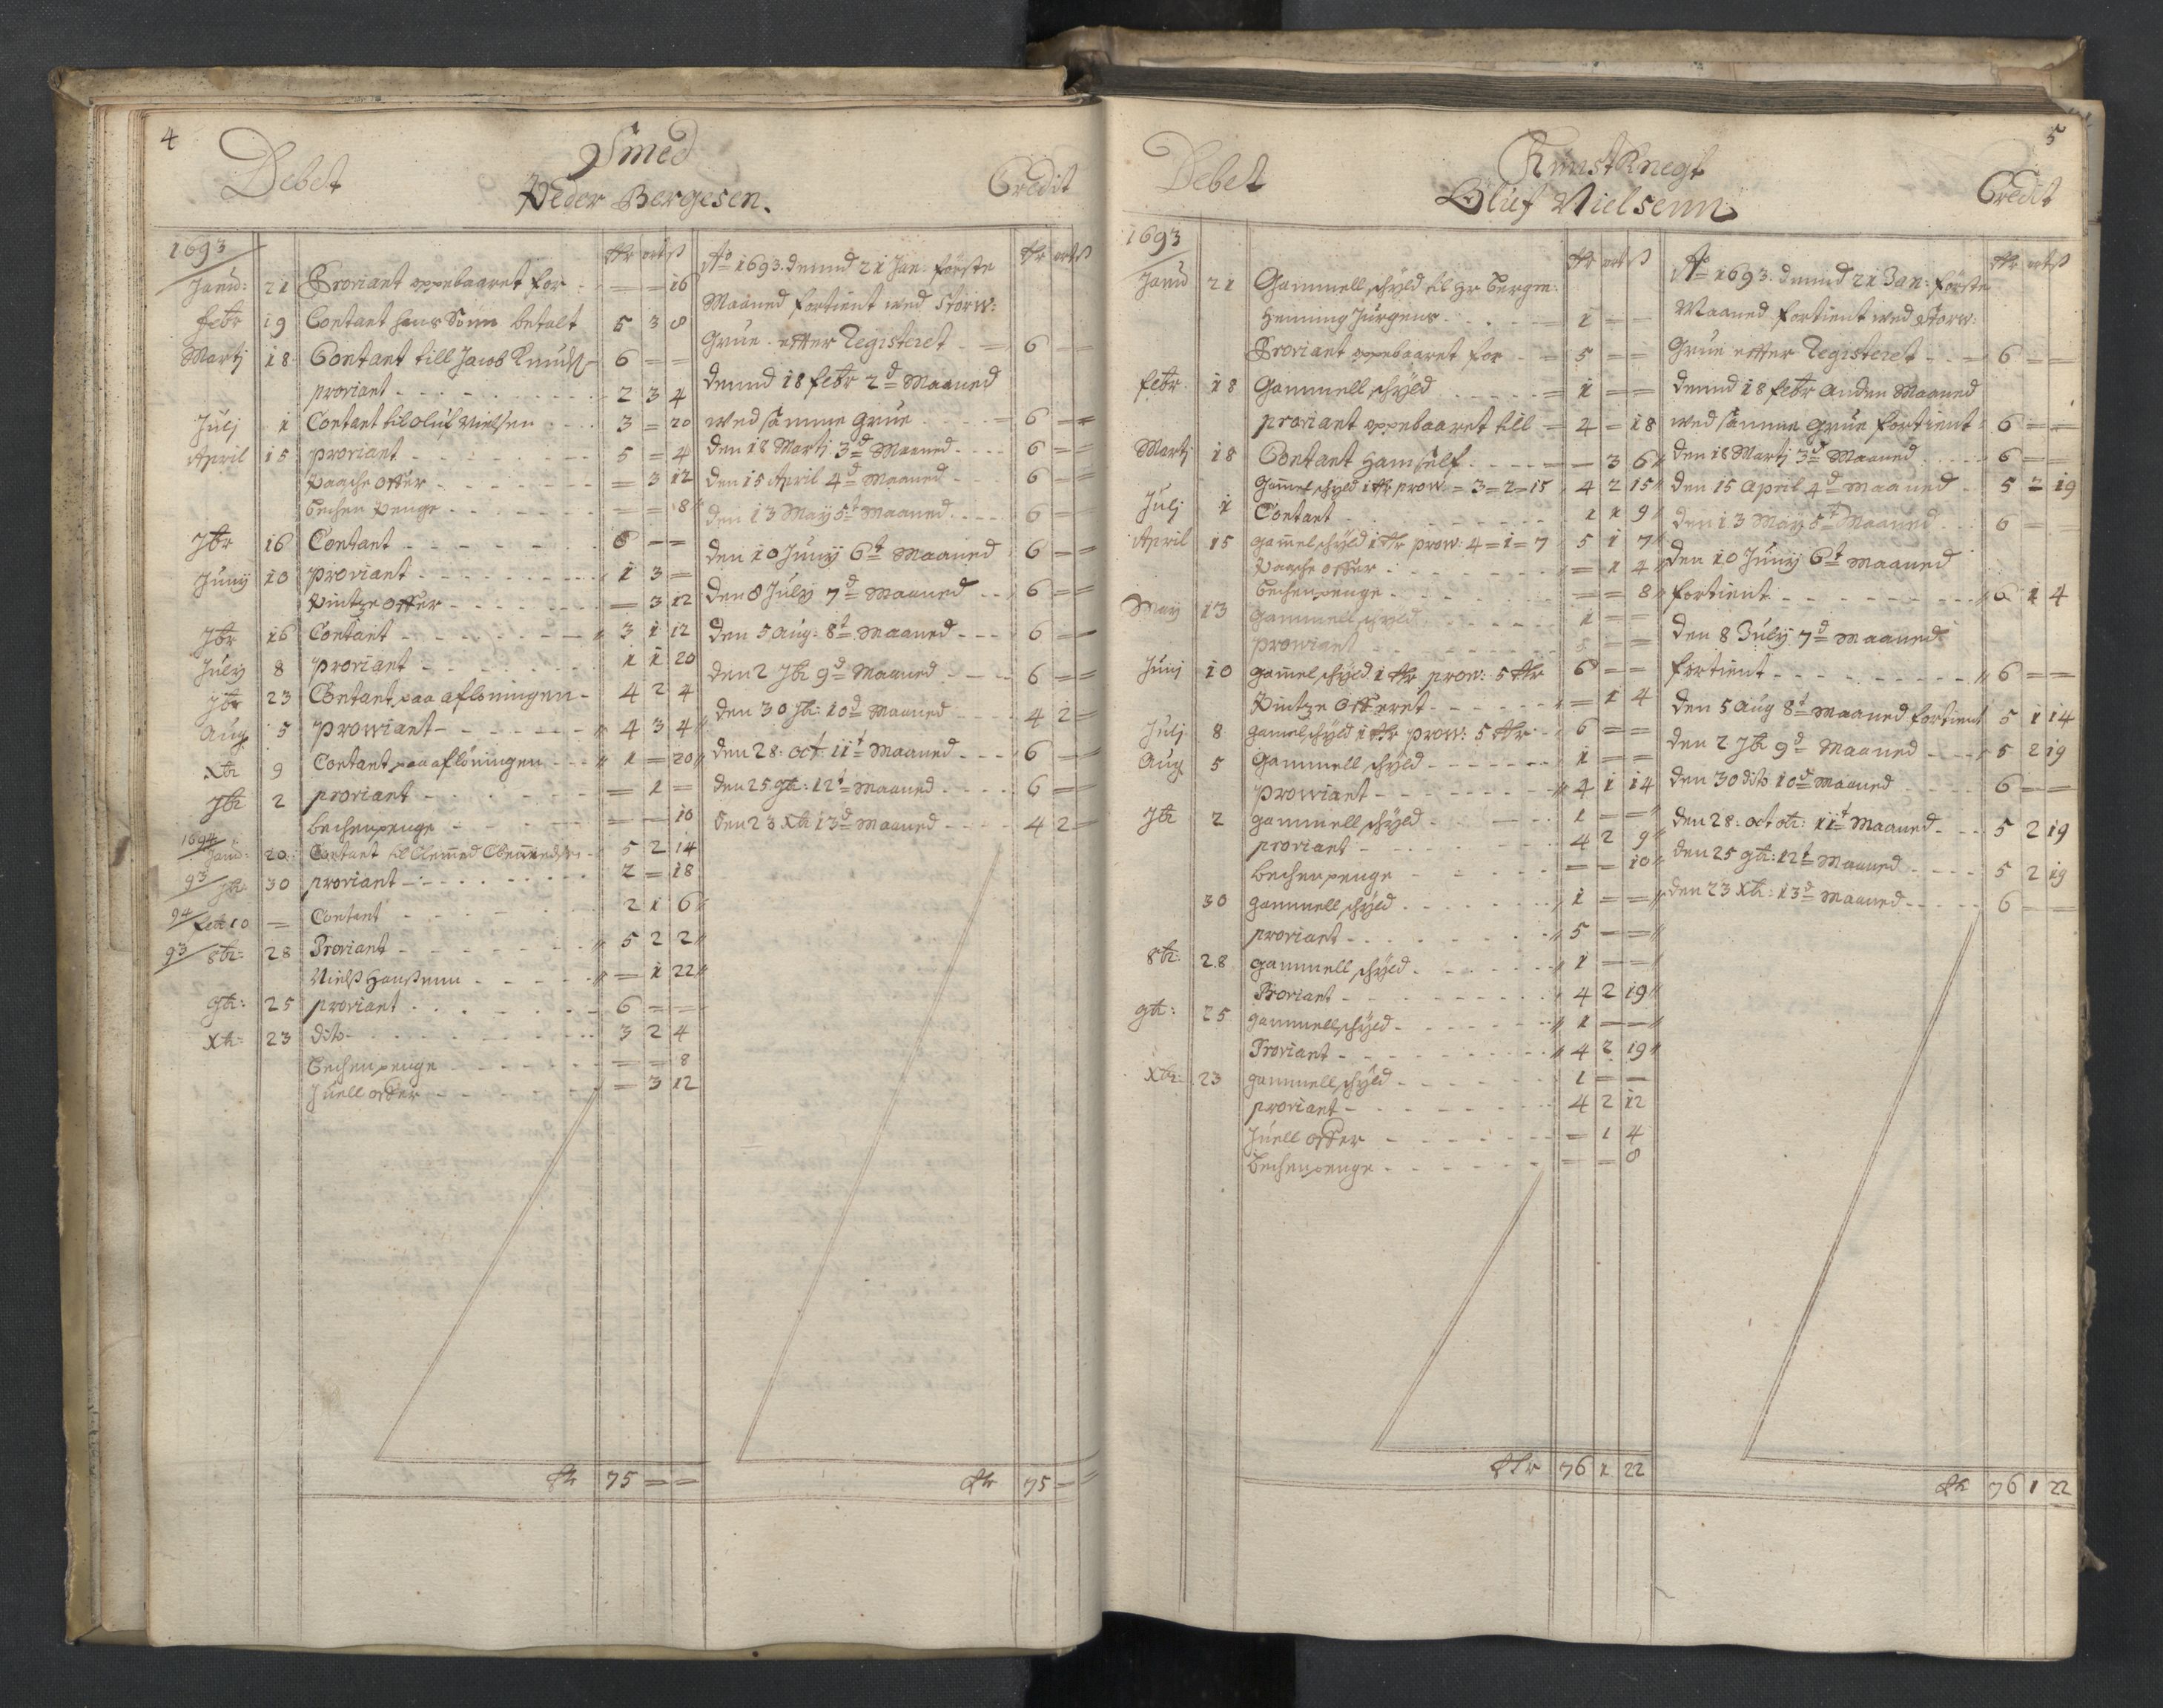 4
Smed
Debet Peder Bergesen. Credit
1693
Rdr ort ß
Janu: 21 Proviant oppebaaret for = = 16
febr 19 Contant hans Sönn betalt 5 3 8
Martj 18 Contant till Jacob Knuds: 6 = =
proviant 2 3 4
Julj 1 Contant til Oluf Nielsen 3 = 20
April 15 proviant 5 = 4
Paasche offer = 3 12
Bechen Penge = = 8
7br 16 Contant 6 = =
Junij 10 proviant 1 3 =
Pintze offer = 3 12
7br 16 Contant 3 1 12
Julij 8 proviant 1 1 20
7br 23 Contant paa aflöningen 4 2 4
Aug 5 prowiant 4 3 4
Xbr 9 Contant paa aflöningen 1 = 20
7br 2 proviant = 1 =
bechenpenge = = 10
1694
Janu: 20 Contant til Clemmed 5 2 14
93 7br: 30 proviant 2 = 18
94 feb: 10 = Contant 2 1 6
93 8br: 28 Proviant 5 2 2
Nielß Hanßenn = 1 22
9br: 25 proviant 6 = =
Xbr: 23 dito 3 2 4
Bechenpenge = = 8
Juell offer = 3 12
Rdr 75 = =
Rdr ort ß
Ao 1693. dennd 21 Jan: förste
Maaned fortient wed Storw:
Grue effter Registeret 6 = =
dennd 18 febr 2d Maaned
wed samme Grue 6 = =
den 18 Martj 3d Maaned 6 = =
den 15 April 4d Maaned 6 = =
den 13 Maij 5t Maaned 6 = =
den 10 Junij 6t Maaned 6 = =
den 8 Julij 7d Maaned 6 = =
den 5 Aug: 8t Maaned 6 = =
den 2 7br 9d Maaned 6 = =
den 30 7br: 10d Maaned 4 2 =
den 28: oct 11t Maaned 6 = =
den 25 9br: 12t Maaned 6 = =
den 23 Xbr 13d Maaned 4 2 =
Rdr 75 = =
5
KunstKnegt
Debet Oluf Nielsenn Credit
1693
Rdr ort ß
Janu 21 Gammell schyld til Hr Bergm:
Henning Jurgens 1 = =
Proviant oppebaaret for 5 = =
febr. 18 Gammell schyld 1 = =
proviant oppebaaret till 4 = 18
Martj 18 Contant Hamself = 3 6
Gammel schyld 1 Rdr prow: = 3 = 2 = 15 4 2 15
Julj 1 Contant 1 1 9
April 15 gammel schyld 1 Rdr prow: 4 = 1 = 7 5 1 7
Paasche offer = 1 4
Bechenpenge = = 8
May 13 Gammell schyld 1 = =
Prowiant 5 = =
Junj 10 gammel schyld 1 Rdr prow: 5 Rdr 6 = =
Pintze Offeret = 1 4
Julj 8 gammel schyld 1 Rdr prow: 5 Rdr 6 = =
Aug 5 Gammell schyld 1 = =
prowiant 4 1 14
7br 2 gammell schyld 1 = =
proviant 4 2 9
bechenpenge = = 10
30 gammell schyld 1 = =
proviant 5 = =
8br: 28 gammell schyld 1 = =
Proviant 4 2 19
9br: 25 gammell schyld 1 = =
Proviant 4 2 19
Xbr: 23 gammell schyld 1 = =
proviant 4 2 12
Juell offer = 1 4
bechenpenge = = 8
Rdr 76 1 22
Rdr ort ß
Ao 1693. dennd 21 Jan: förste
Maaned fortient wed Storw:
Grue effter Registeret 6 = =
dennd 18 febr anden Maaned
wed samme Grue fortient 6 = =
den 18 Martj 3d Maaned 6 = =
den 15 april 4d Maaned 5 2 19
den 13 Maij 5t Maaned 6 = =
den 10 Junij 6t Maaned
fortient 6 1 4
den 8 Julij 7d Maaned
fortient 6 = =
den 5 Aug 8t Maaned fortient 5 1 14
den 2 7br 9d Maaned 5 2 19
den 30 dito 10d Maaned 6 = =
den 28: octobr: 11t Maaned 5 2 19
den 25 9br: 12t Maaned 5 2 19
den 23 Xbr: 13d Maaned 6 = =
Rdr 76 1 22